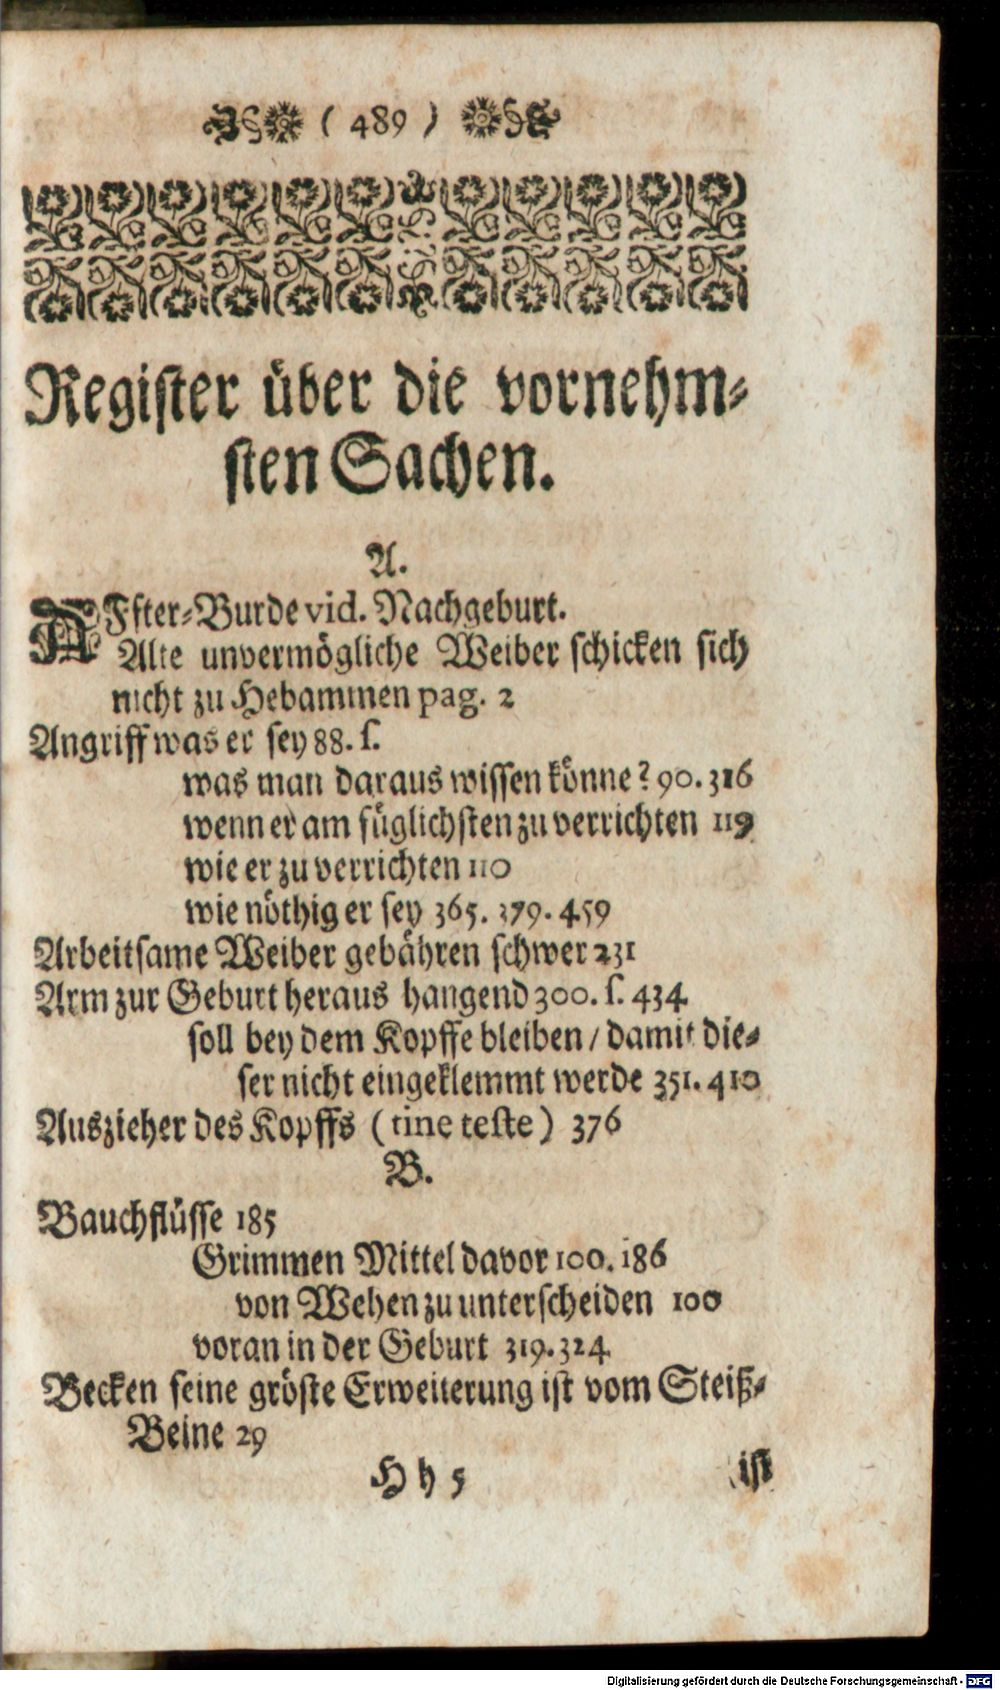 ( 489 )
Register über die vornehm-
sten Sachen.
A.
AFfter-Burde vid. Nachgeburt.
Alte unvermögliche Weiber schicken sich
nicht zu Hebammen pag. 2
Angriff was er sey 88. s.
was man daraus wissen könne? 90. 316
wenn er am füglichsten zu verrichten 119
wie er zu verrichten 110
wie nöthig er sey 365. 379. 459
Arbeitsame Weiber gebähren schwer 231
Arm zur Geburt heraus hangend 300. s. 434.
soll bey dem Kopffe bleiben / damit die-
ser nicht eingeklemmt werde 351. 410
Auszieher des Kopffs (tine teste) 376
B.
Bauchflüsse 185
Grimmen Mittel davor 100. 186
von Wehen zu unterscheiden 100
voran in der Geburt 319. 324.
Becken seine gröste Erweiterung ist vom Steiß-
Beine 29
H h 5 ist
Digitalisierung gefördert durch die Deutsche Forschungsgemeinschaft - DFG